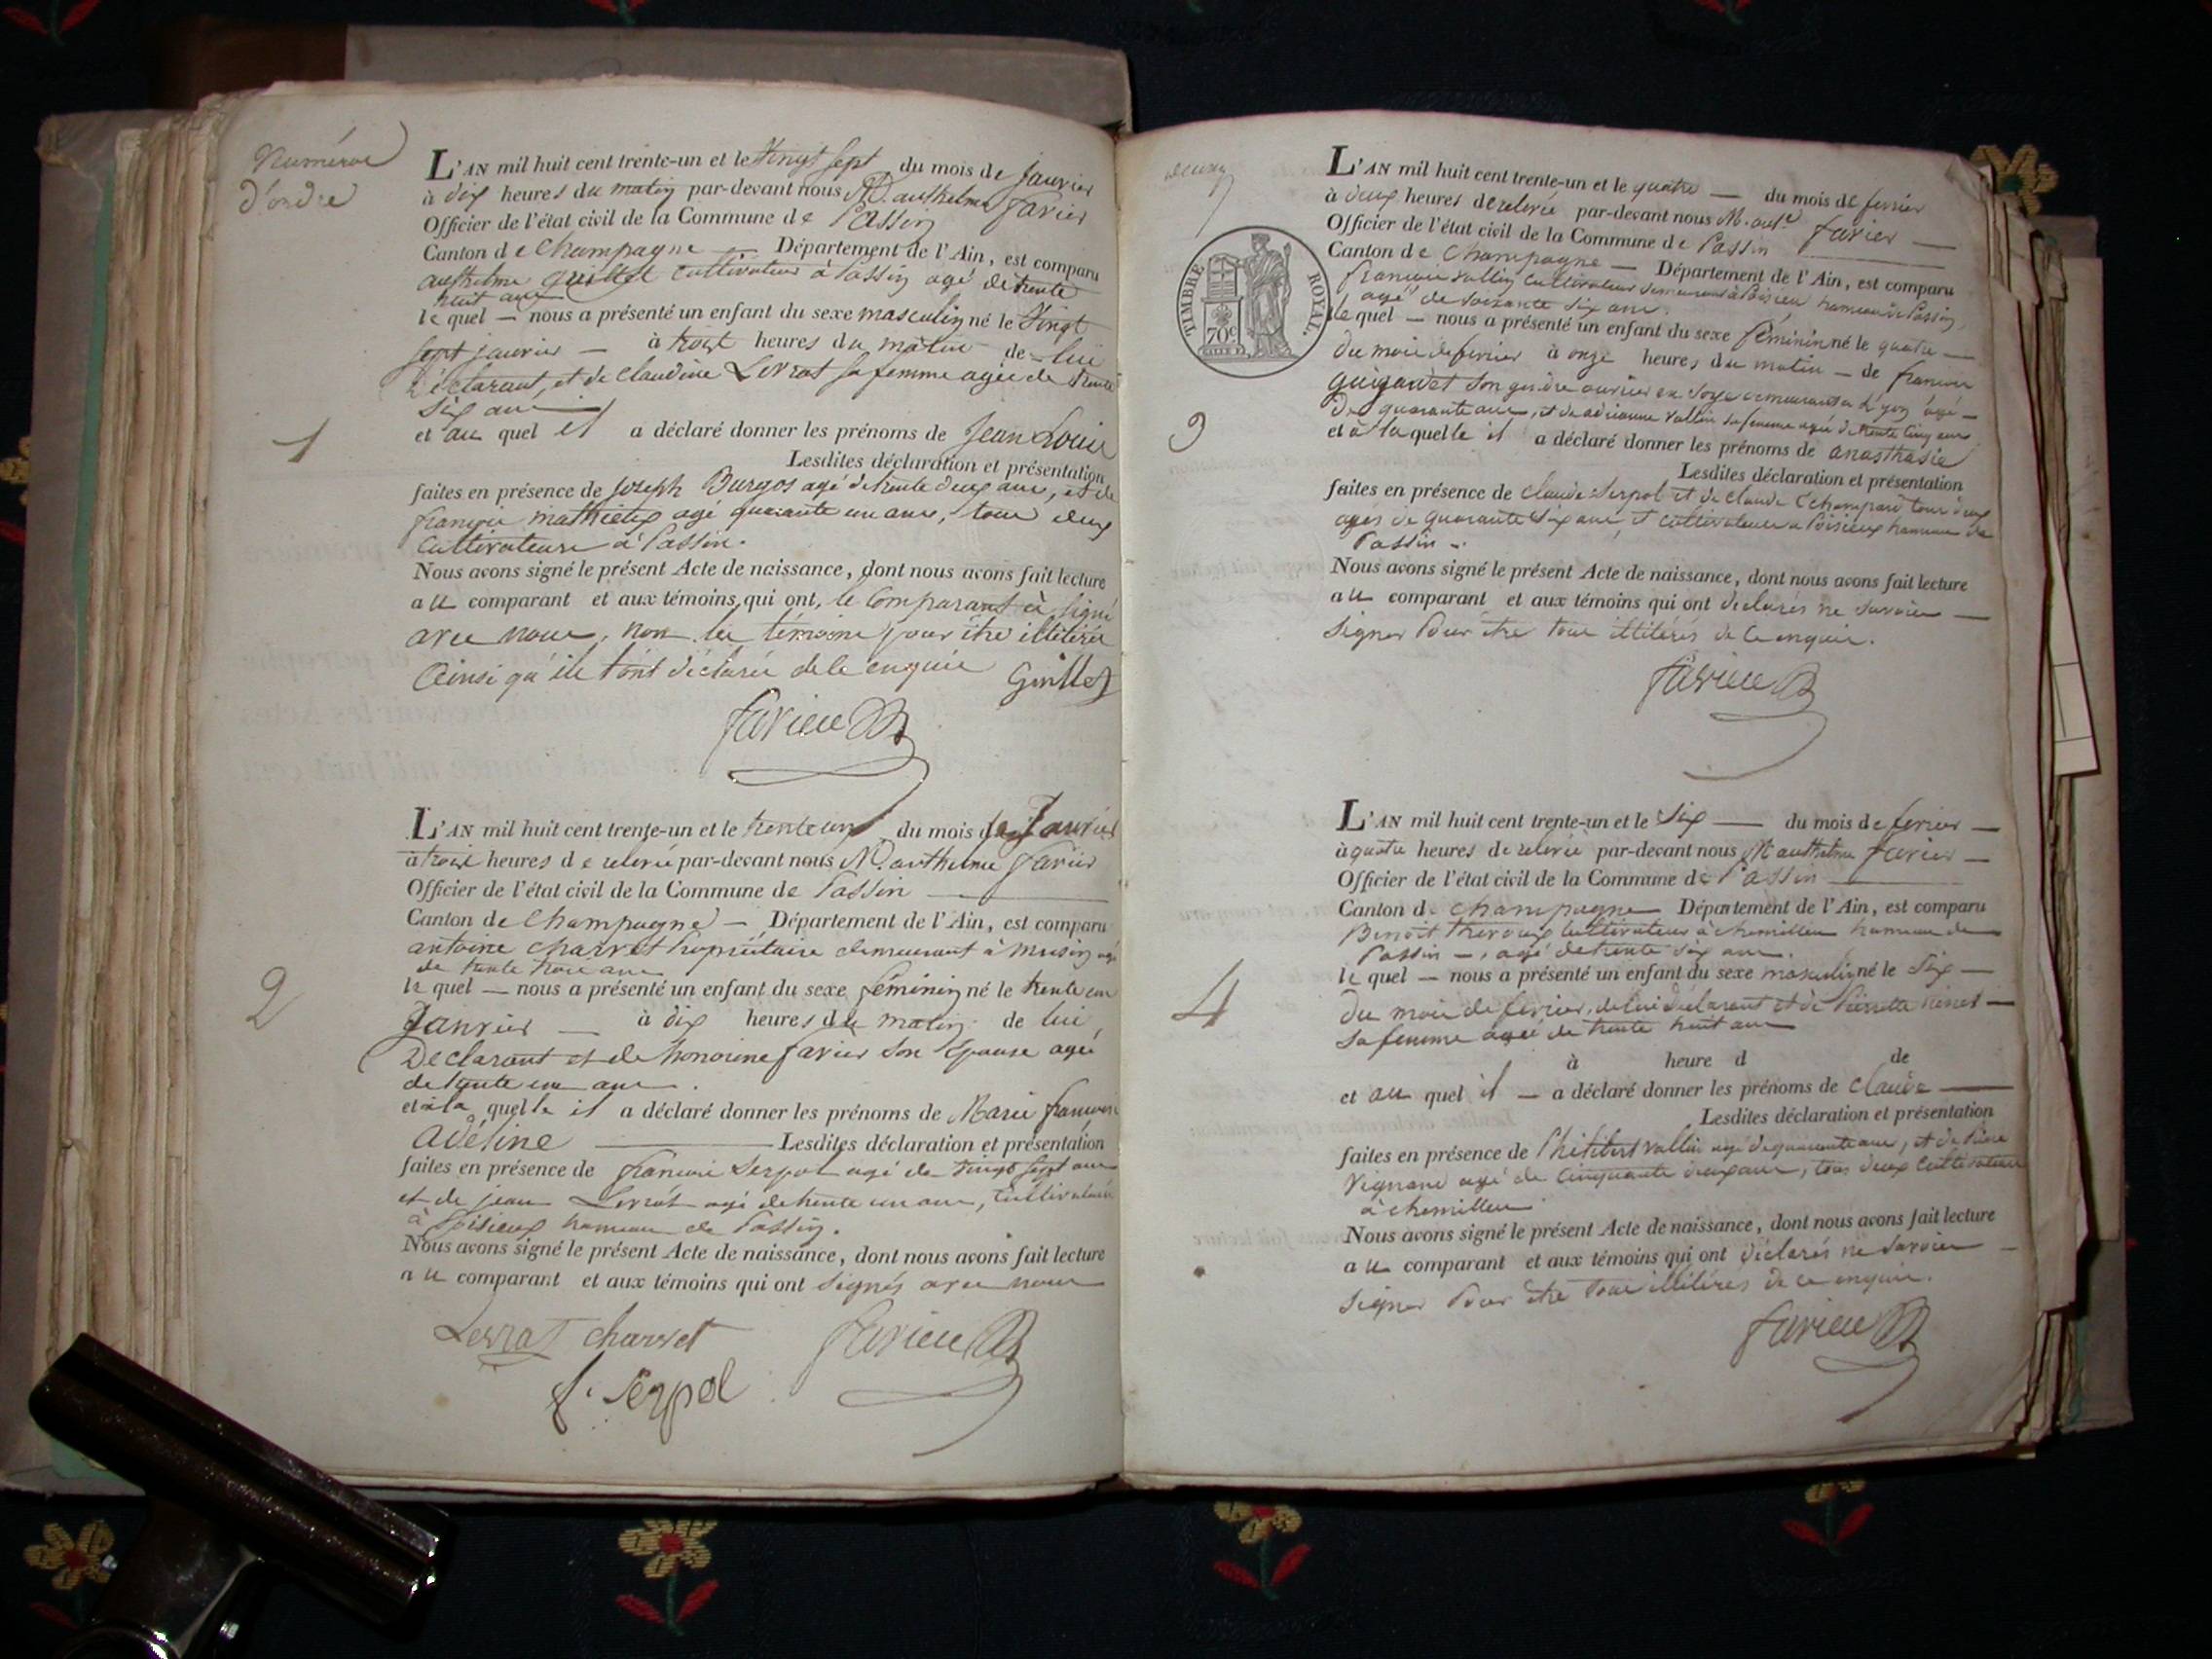 Numéros
d'ordre
L'AN mil huit cent trente-un et le Vingt sept du mois de janvier
à dix heures du matin par-devant nous M. anthelme favier
Officier de l'état civil de la Commune de Passin
Canton de Champagne — Département de l'Ain, est comparu
anthelme guillet cultivateur à Passin agé de trente
huit ans
le quel — nous a présenté un enfant du sexe masculin né le Vingt
sept janvier — à trois heures du matin de lui
Déclarant, et de claudine Levrat sa femme agée de trente
six ans
1
et au quel il a déclaré donner les prénoms de Jean Louis
Lesdites déclaration et présentation
faites en présence de joseph Burgos agé de trente deux ans, et de
françois mathieux agé quarante un ans, tous deux
cultivateurs à Passin.
Nous avons signé le présent Acte de naissance, dont nous avons fait lecture
au comparant et aux témoins qui ont, le Comparant à signé
avec nous, non les témoins pour être illitérés
Ainsi qu'ils l'ont déclarés de ce enquis Guillet
favier
L'AN mil huit cent trente-un et le trente un du mois de Janvier
à trois heures de relevé par-devant nous M. anthelme favier
Officier de l'état civil de la Commune de Passin
Canton de Champagne — Département de l'Ain, est comparu
antoine charvet Propriétaire demeurant à musin agé
de trente trois ans
2
le quel — nous a présenté un enfant du sexe féminin né le trente un
Janvier — à dix heures du matin de lui
Déclarant et de honorine favier son Epouse agée
de trente un ans.
et à la quelle il a déclaré donner les prénoms de Marie françoise
Adéline — Lesdites déclaration et présentation
faites en présence de françois Serpol agé de vingt sept ans
et de jean Levrat agé de trente un ans, cultivateurs
à Poisieux hameau de Passin.
Nous avons signé le présent Acte de naissance, dont nous avons fait lecture
au comparant et aux témoins qui ont signés avec nous
Levrat charvet favier
f. Serpol
deux
TIMBRE ROYAL.
70c
L'AN mil huit cent trente-un et le quatre — du mois de fevrier
à deux heures de relevée par-devant nous M. ant. favier —
Officier de l'état civil de la Commune de Passin
Canton de Champagne — Département de l'Ain, est comparu
françois vallin cultivateur demeurant à Poisieu hameau de Passin,
agé de soixante six ans.
le quel — nous a présenté un enfant du sexe féminin né le quatre —
du mois de fevrier à onze heures du matin — de françois
guigardet son gendre ouvrier en soye demeurant a Lyon agé —
De quarante ans, et de adrianne vallin sa femme agée de trente cinq ans
3
et à la quelle il a déclaré donner les prénoms de anasthasie
Lesdites déclaration et présentation
faites en présence de claude Serpol et de claude tous deux
agés de quarante six ans et cultivateurs a Poisieux hameau de
Passin —.
Nous avons signé le présent Acte de naissance, dont nous avons fait lecture
au comparant et aux témoins qui ont déclarés ne savoir —
signer Pour être tous illitérés de ce enquis.
favier
L'AN mil huit cent trente-un et le Six — du mois de fevrier —
à quatre heures de relevée par-devant nous M anthelme favier —
Officier de l'état civil de la Commune de Passin
Canton de Champagne Département de l'Ain, est comparu
Benoit cultivateur à chemillieu hameau de
Passin —, agé de trente six ans.
le quel — nous a présenté un enfant du sexe masculin né le Six —
4
du mois de fevrier, de lui déclarant et de Pierrette —
sa femme agée de trente huit ans
à heure d de
et au quel il — a déclaré donner les prénoms de claude —
Lesdites déclaration et présentation
faites en présence de Philibert vallin agé de quarante ans, et de
Vignand agé de cinquante deux ans, tous deux cultivateurs
à chemillieu
Nous avons signé le présent Acte de naissance, dont nous avons fait lecture
au comparant et aux témoins qui ont déclarés ne savoir —
signer Pour être tous illitéres de ce enquis.
favier